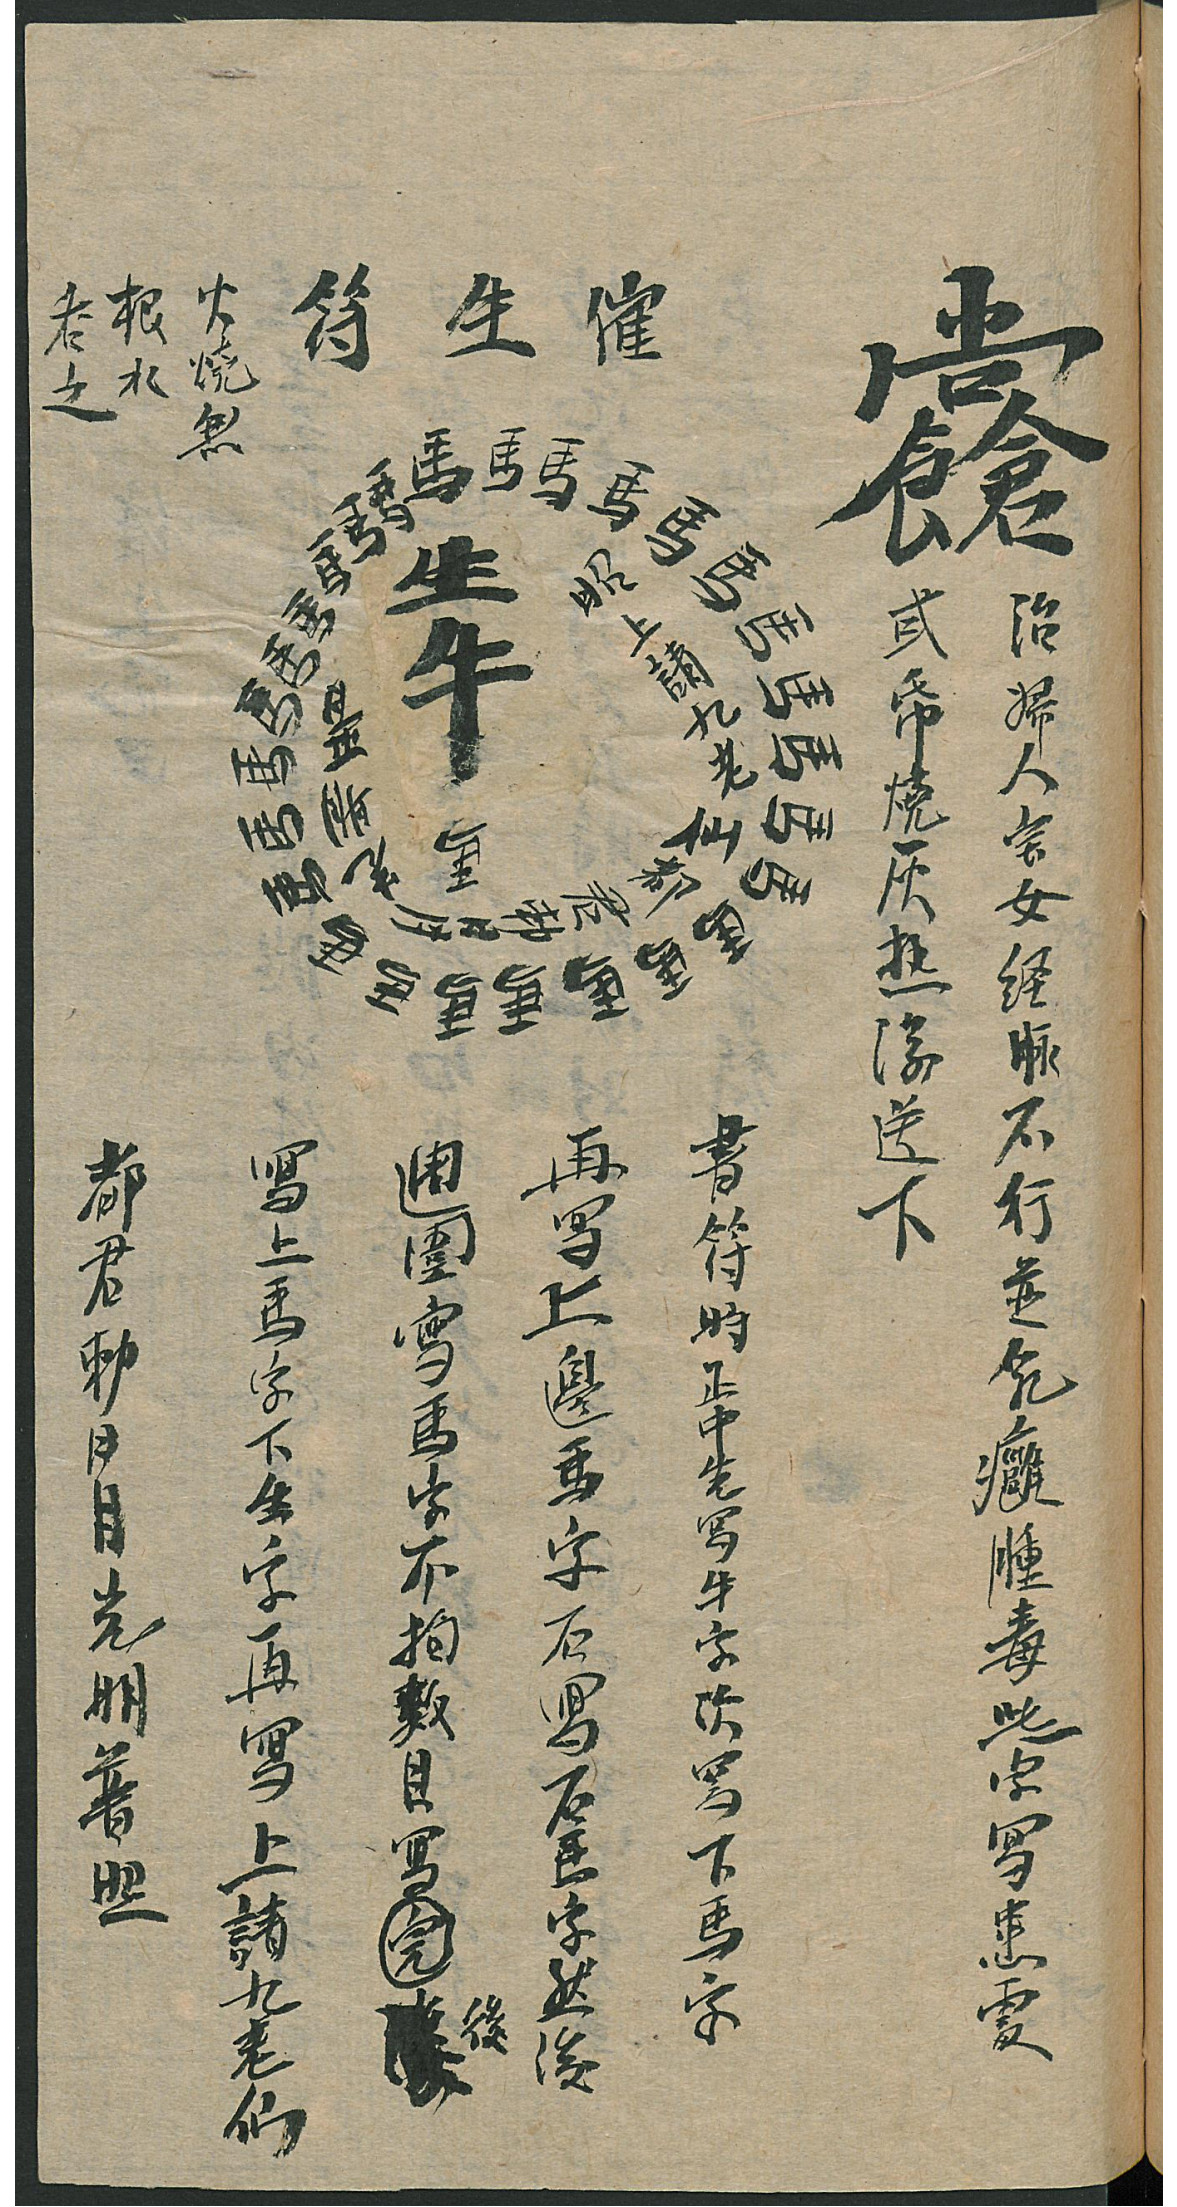 治婦人室女経脉不行並乳癰腫毒此字写患處
或帋燒灰热湯送下
催生符
火燒無
根水
吞之
馬馬馬馬馬馬馬馬馬馬馬馬馬馬馬馬馬馬馬馬馬馬馬馬馬馬馬
生
牛
馬
上請九老仙都君勅日月光明普照
書符時正中先写牛字次写下馬字
再写上邊馬字右写右馬字然後
週圍寫馬字不拘數目写完後
写上馬字下生字再写上請九老仙
都君勅日月光明普照